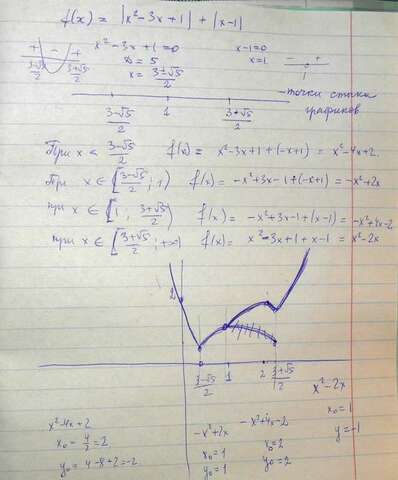 f(x) = |x²-3x+1| + |x-1|
+ - +
(3-√5)/2 (3+√5)/2
x²-3x+1=0
D = 5
x = (3±√5)/2
x-1=0
x=1
- +
1
(3-√5)/2 1 (3+√5)/2
-точки стыка
графиков
При x < (3-√5)/2 f(x) = x²-3x+1+(-x+1) = x²-4x+2.
При x ∈ [(3-√5)/2; 1) f(x) = -x²+3x-1+(-x+1) = -x²+2x
при x ∈ [1; (3+√5)/2) f(x) = -x²+3x-1+(x-1) = -x²+4x-2
при x ∈ [(3+√5)/2; +∞) f(x) = x²-3x+1+x-1 = x²-2x
2
(3-√5)/2 1 2 (3+√5)/2
x²-2x
x₀=1
y=-1
x²-4x+2
x₀ = 4/2 = 2
y₀ = 4-8+2=-2
-x²+2x
x₀=1
y₀=1
-x²+4x-2
x₀=2
y₀=2